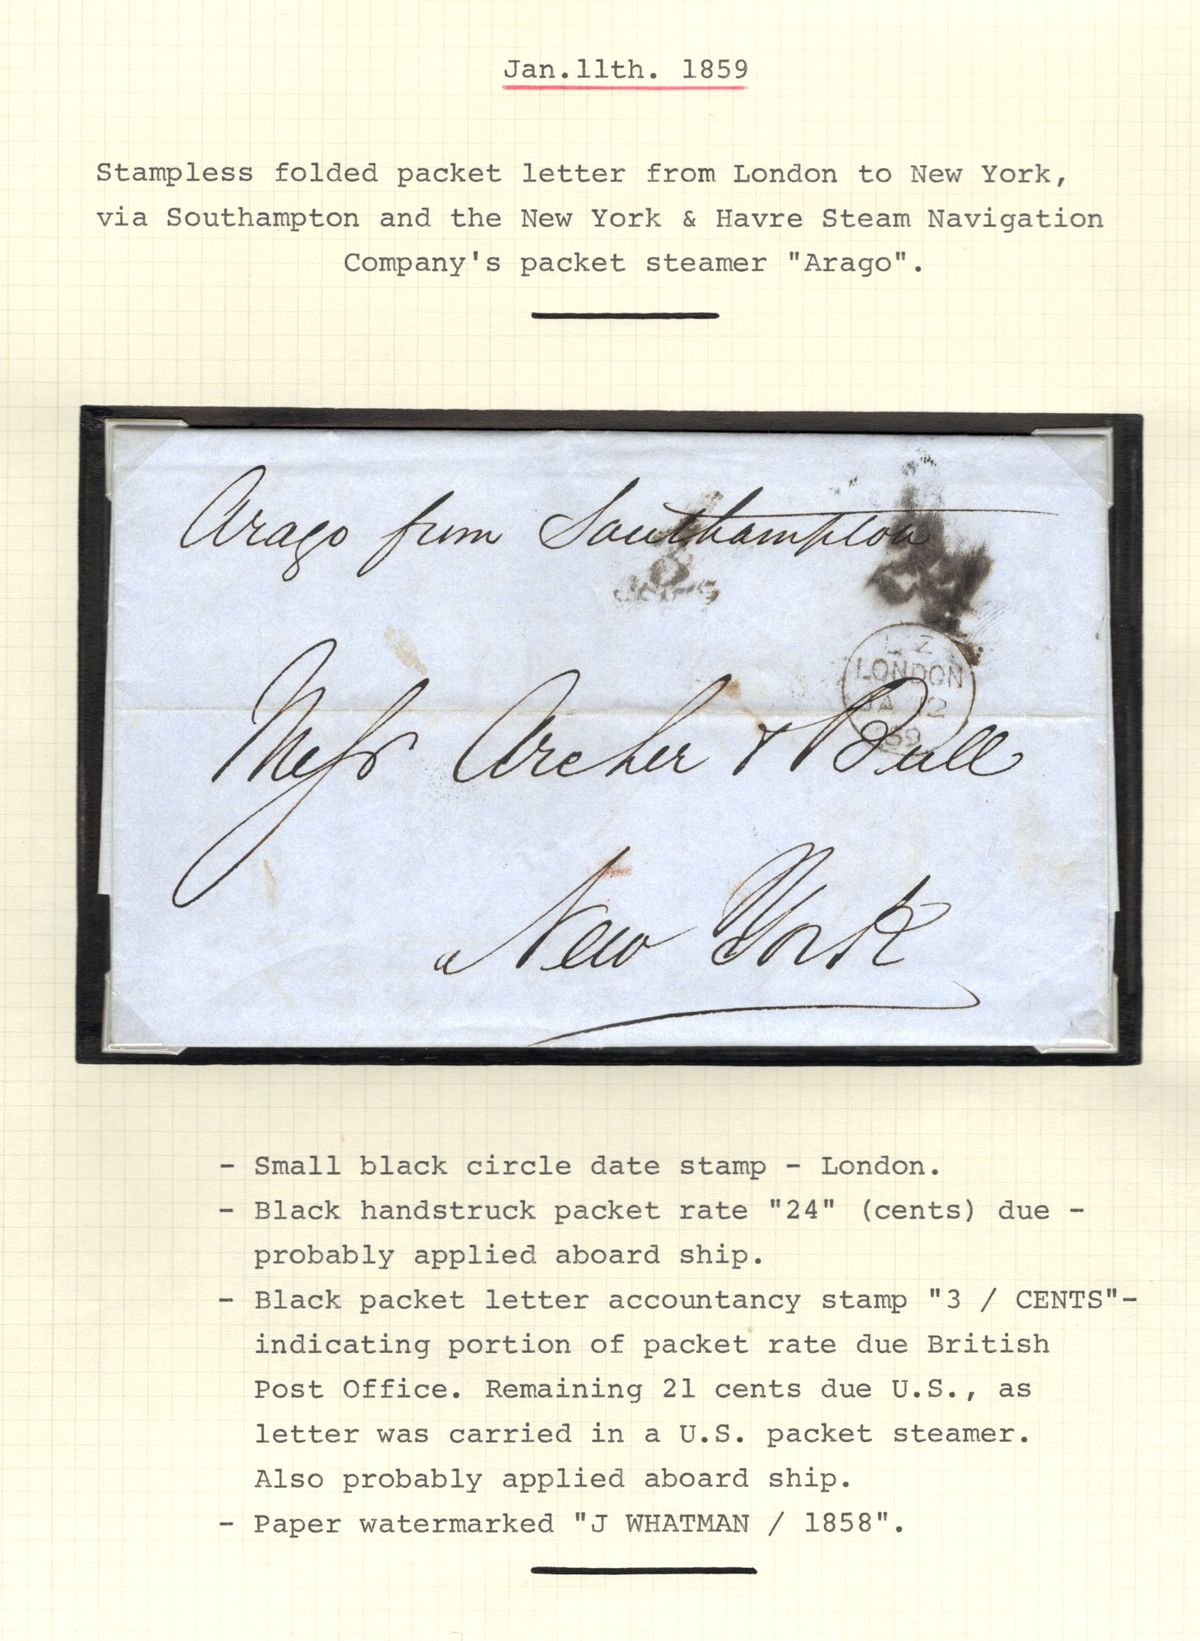 Jan.11th. 1859
Stampless folded packet letter from London to New York,
via Southampton and the New York & Havre Steam Navigation
Company's packet steamer "Arago".
Arago from Southampton
3
CENTS
LZ
LONDON
JA 12
59
Messrs Archer & Bull
New York
- Small black circle date stamp - London.
- Black handstruck packet rate "24" (cents) due -
probably applied aboard ship.
- Black packet letter accountancy stamp "3 / CENTS"-
indicating portion of packet rate due British
Post Office. Remaining 21 cents due U.S., as
letter was carried in a U.S. packet steamer.
Also probably applied aboard ship.
- Paper watermarked "J WHATMAN / 1858".